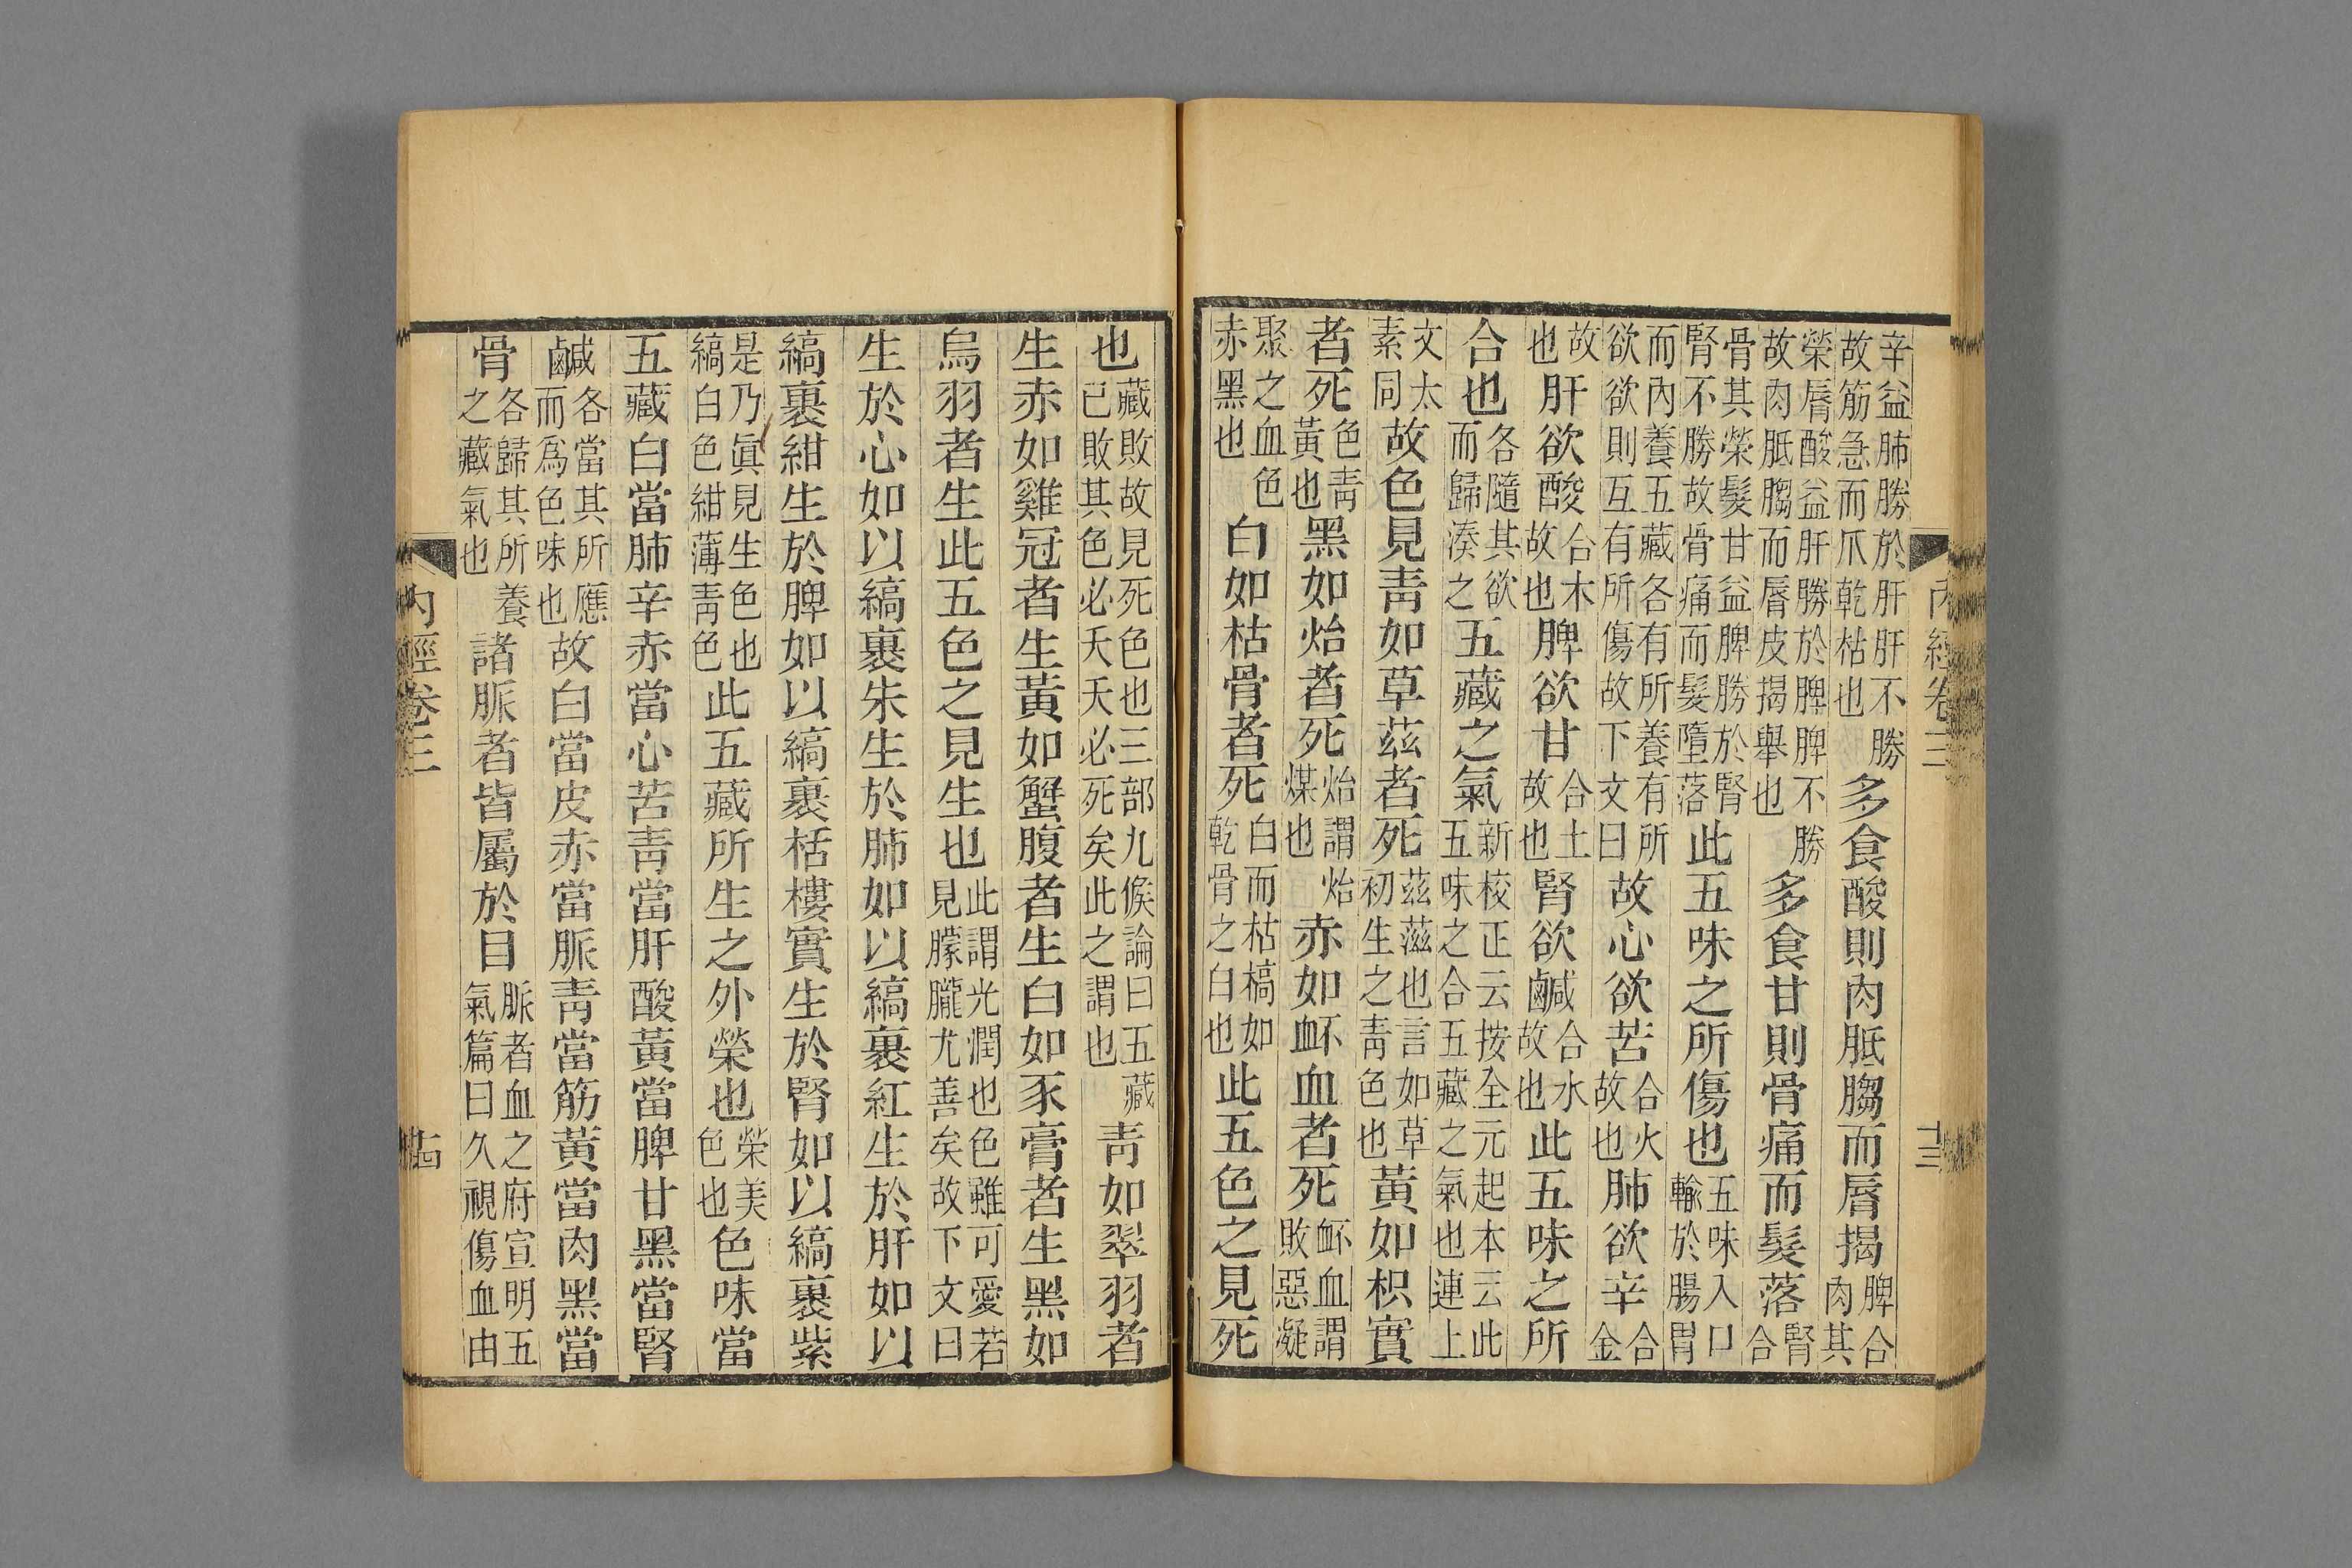 內經卷三 十三
辛益肺勝於肝肝不勝故筋急而爪乾枯也多食酸則肉胝䐢而脣揭脾合肉其
榮脣酸益肝勝於脾脾不勝故肉胝䐢而脣皮揭舉也多食甘則骨痛而髮落腎合
骨其榮髮甘益脾勝於腎腎不勝故骨痛而髮墮落此五味之所傷也五味入口輸於腸胃
而內養五藏各有所養有所欲欲則互有所傷故下文曰故心欲苦合火故也肺欲辛合金
故也肝欲酸合木故也脾欲甘合土故也腎欲鹹合水故也此五味之所
合也各隨其欲而歸湊之五藏之氣新校正云按全元起本云此五味之合五藏之氣也連上
文太素同故色見靑如草茲者死茲滋也言如草初生之靑色也黃如枳實
者死色靑黃也黑如炲者死炲謂炲煤也赤如衃血者死衃血謂敗惡凝
聚之血色赤黑也白如枯骨者死白而枯槁如乾骨之白也此五色之見死
也藏敗故見死色也三部九候論曰五藏已敗其色必夭夭必死矣此之謂也靑如翠羽者
生赤如雞冠者生黃如蟹腹者生白如豕膏者生黑如
烏羽者生此五色之見生也此謂光潤也色雖可愛若見朦朧尤善矣故下文曰
生於心如以縞裹朱生於肺如以縞裹紅生於肝如以
縞裹紺生於脾如以縞裹栝樓實生於腎如以縞裹紫
是乃眞見生色也縞白色紺薄靑色此五藏所生之外榮也榮美色也色味當
五藏白當肺辛赤當心苦靑當肝酸黃當脾甘黑當腎
鹹各當其所應而爲色味也故白當皮赤當脈靑當筋黃當肉黑當
骨各歸其所養之藏氣也諸脈者皆屬於目脈者血之府宣明五氣篇曰久視傷血由
內經卷三 十四